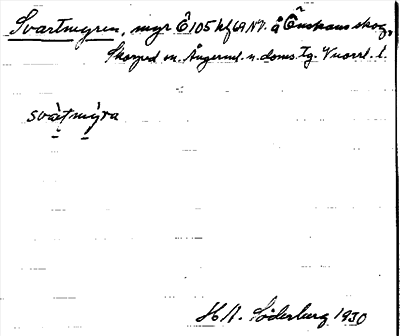 Svartmyren, myr Ö 105 kf 69 NV. å Önskans skog,
Skorped sn. Ångerml. n. doms. tg. Vnorrl. l.
svàtmỳra
H. Söderberg 1930